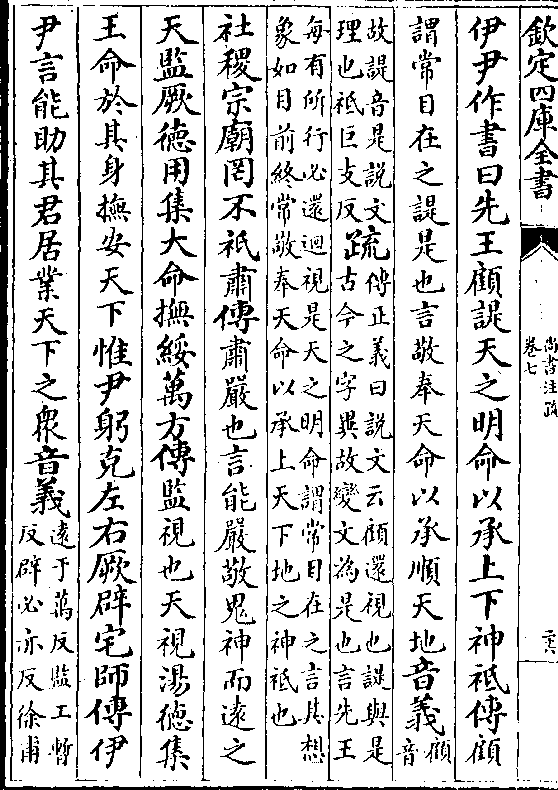 欽定四庫全書
尚書注疏
卷七
二六
伊尹作書曰先王顧諟天之明命以承上下神祗傳顧
謂常目在之諟是也言敬奉天命以承順天地音義顧音
故諟音是說文
理也祗巨支反疏傳正義曰說文云顧還視也諟與是
古今之字異故變文為是也言先王
每有所行必還迴視是天之明命謂常目在之言其想
象如目前終常敬奉天命以承上天下地之神祗也
社稷宗廟罔不祗肅傳肅嚴也言能嚴敬鬼神而遠之
天監厥德用集大命撫綏萬方傳監視也天視湯德集
王命於其身撫安天下惟尹躬克左右厥辟宅師傳伊
尹言能助其君居業天下之衆音義遠于萬反監工暫
反辟必亦反徐甫